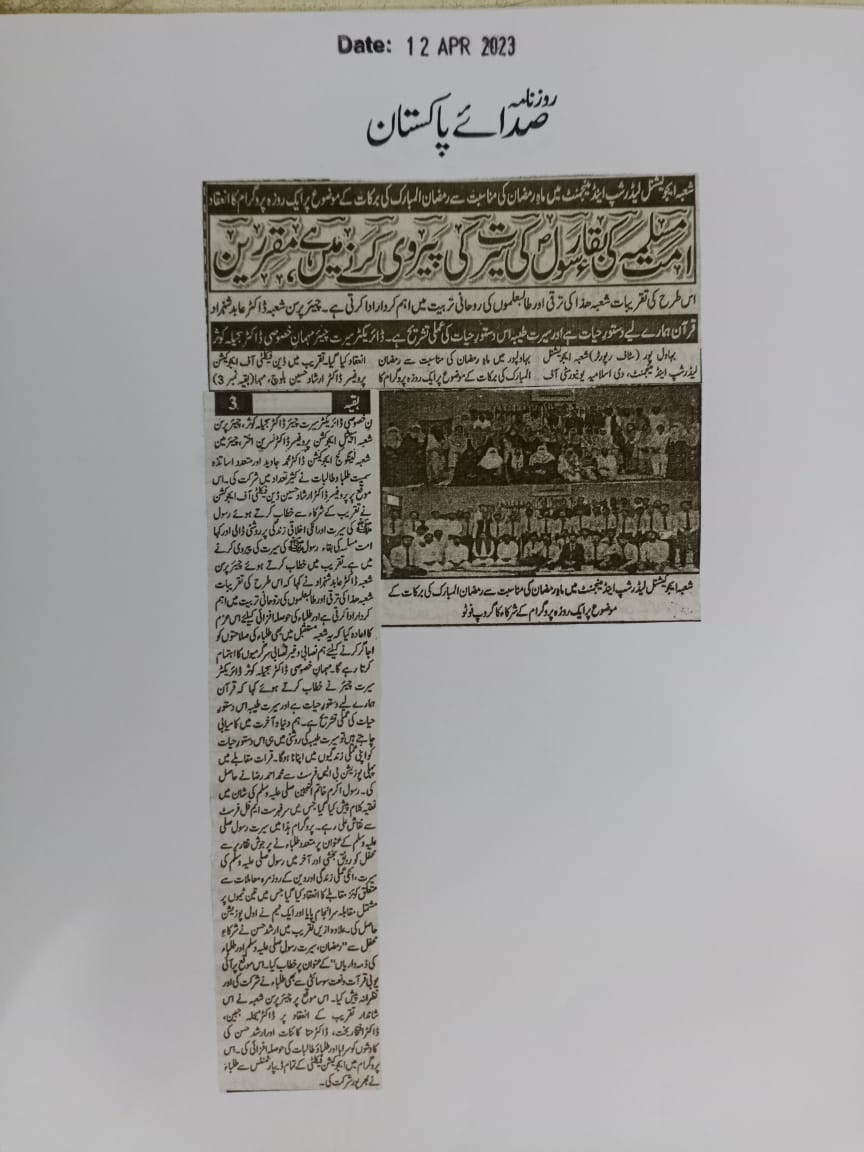 Date: 12 APR 2023
روزنامہ
صدائے پاکستان
شعبہ ایجوکیشنل لیڈرشپ اینڈ مینجمنٹ میں ماہ رمضان کی مناسبت سے رمضان المبارک کی برکات کے موضوع پر ایک روزہ پروگرام کا انعقاد
امت مسلمہ کی بقاء رسولؐ کی سیرت کی پیروی کرنے میں ہے، مقررین
اس طرح کی تقریبات شعبہ ھذا کی ترقی اور طالبعلموں کی روحانی تربیت میں اہم کردار ادا کرتی ہے۔ چیئرپرسن شعبہ ڈاکٹر عابد شہزاد
قرآن ہمارے لیے دستور حیات ہے اور سیرت طیبہ اس دستور حیات کی عملی تشریح ہے۔ ڈائریکٹر سیرت چیئر مہمان خصوصی ڈاکٹر جمیلہ کوثر
بہاول پور (سٹاف رپورٹر) شعبہ ایجوکیشنل
لیڈرشپ اینڈ مینجمنٹ، دی اسلامیہ یونیورسٹی آف
بہاولپور میں ماہ رمضان کی مناسبت سے رمضان
المبارک کی برکات کے موضوع پر ایک روزہ پروگرام کا
انعقاد کیا گیا۔ تقریب میں ڈین فیکلٹی آف ایجوکیشن
پروفیسر ڈاکٹر ارشاد حسین بلوچ، مہما (بقیہ نمبر 3)
شعبہ ایجوکیشنل لیڈرشپ اینڈ مینجمنٹ میں ماہ رمضان کی مناسبت سے رمضان المبارک کی برکات کے
موضوع پر ایک روزہ پروگرام کے شرکاء کا گروپ فوٹو
بقیہ 3
ن خصوصی ڈائریکٹر سیرت چیئر ڈاکٹر جمیلہ کوثر، چیئرپرسن
شعبہ اسپیشل ایجوکشن پروفیسر ڈاکٹر نسرین اختر، چیئرمین
شعبہ لینگوئج ایجوکیشن ڈاکٹر محمد جاوید اور متعدد اساتذہ
سمیت طلباء و طالبات نے کثیر تعداد میں شرکت کی۔ اس
موقع پر پروفیسر ڈاکٹر ارشاد حسین ڈین فیکلٹی آف ایجوکشن
نے تقریب کے شرکاء سے خطاب کرتے ہوئے رسول
ﷺ کی سیرت اور انکی اخلاقی زندگی پر روشنی ڈالی اور کہا
امت مسلمہ کی بقاء رسولﷺ کی سیرت کی پیروی کرنے
میں ہے۔ تقریب میں خطاب کرتے ہوئے چیئرپرسن
شعبہ ڈاکٹر عابد شہزاد نے کہا کہ اس طرح کی تقریبات
شعبہ ھذا کی ترقی اور طالبعلموں کی روحانی تربیت میں اہم
کردار ادا کرتی ہے اور طلباء کی حوصلہ افزائی کیلئے اس عزم
کا اعادہ کیا کہ یہ شعبہ مستقبل میں بھی طلباء کی صلاحیتوں کو
اجاگر کرنے کیلئے ہم نصابی و غیر نصابی سرگرمیوں کا اہتمام
کرتا رہے گا۔ مہمان خصوصی ڈاکٹر جمیلہ کوثر ڈائریکٹر
سیرت چیئر نے خطاب کرتے ہوئے کہا کہ قرآن
ہمارے لیے دستور حیات ہے اور سیرت طیبہ اس دستور
حیات کی عملی تشریح ہے۔ ہم دنیا و آخرت میں کامیابی
چاہتے ہیں تو سیرت طیبہ کی روشنی میں ہی اس دستور حیات
کو اپنی عملی زندگیوں میں اپنانا ہوگا۔ قرات مقابلے میں
پہلی پوزیشن بی ایس فرسٹ سے محمد احمد رضا نے حاصل
کی۔ رسول اکرم خاتم النبیین صلی علیہ وسلم کی شان میں
نعتیہ کلام پیش کیا گیا جس میں سرفہرست ایم فل فرسٹ
سے نقاش علی رہے۔ پروگرام ہذا میں سیرت رسول صلی
علیہ وسلم کے عنوان پر متعدد طلباء نے پرجوش تقاریر سے
محفل کو رونق بخشی اور آخر میں رسول صلی علیہ وسلم کی
سیرت، انکی عملی زندگی اور دین کے روزمرہ معاملات سے
متعلق کوئز مقابلے کا انعقاد کیا گیا جس میں تین ٹیموں پر
مشتمل مقابلہ سرانجام پایا اور ایک ٹیم نے اول پوزیشن
حاصل کی۔ علاوہ ازیں تقریب میں ارشد حسن نے شرکاء
محفل سے "رمضان، سیرت رسول صلی علیہ وسلم اور طلباء
کی ذمہ داریاں" کے عنوان پر خطاب کیا۔ اس موقع پر آئی
یو بی قرآت و نعت سوسائٹی سے بھی طلباء نے شرکت کی اور
نظرانہ پیش کیا۔ اس موقع پر چیئرپرسن شعبہ نے اس
شاندار تقریب کے انعقاد پر ڈاکٹر جبین،
ڈاکٹر افتخار بخت، ڈاکٹر حنا کائنات اور ارشد حسن کی
کاوشوں کو سراہا اور طلباؤ طالبات کی حوصلہ افزائی کی۔ اس
پروگرام میں ایجوکیشن فیکلٹی کے تمام ڈیپارٹمنٹس سے طلباء
نے بھرپور شرکت کی۔